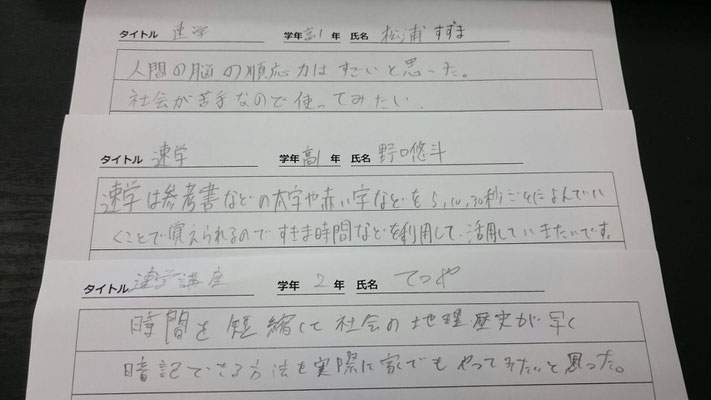 タイトル 速学 学年 高1 年 氏名 松浦 すずま
人間の脳の順応力はすごいと思った。
社会が苦手なので使ってみたい.
タイトル 速学 学年 高1 年 氏名 野口悠斗
速学は参考書などの太字や赤い字などを5,10,30秒ごとによんでい
くことで覚えられるのですきま時間などを利用して活用していきたいです。
タイトル 速学講座 学年 2 年 氏名 てつや
時間を短縮して社会の地理歴史が早く
暗記できる方法を実際に家でもやってみたいと思った。